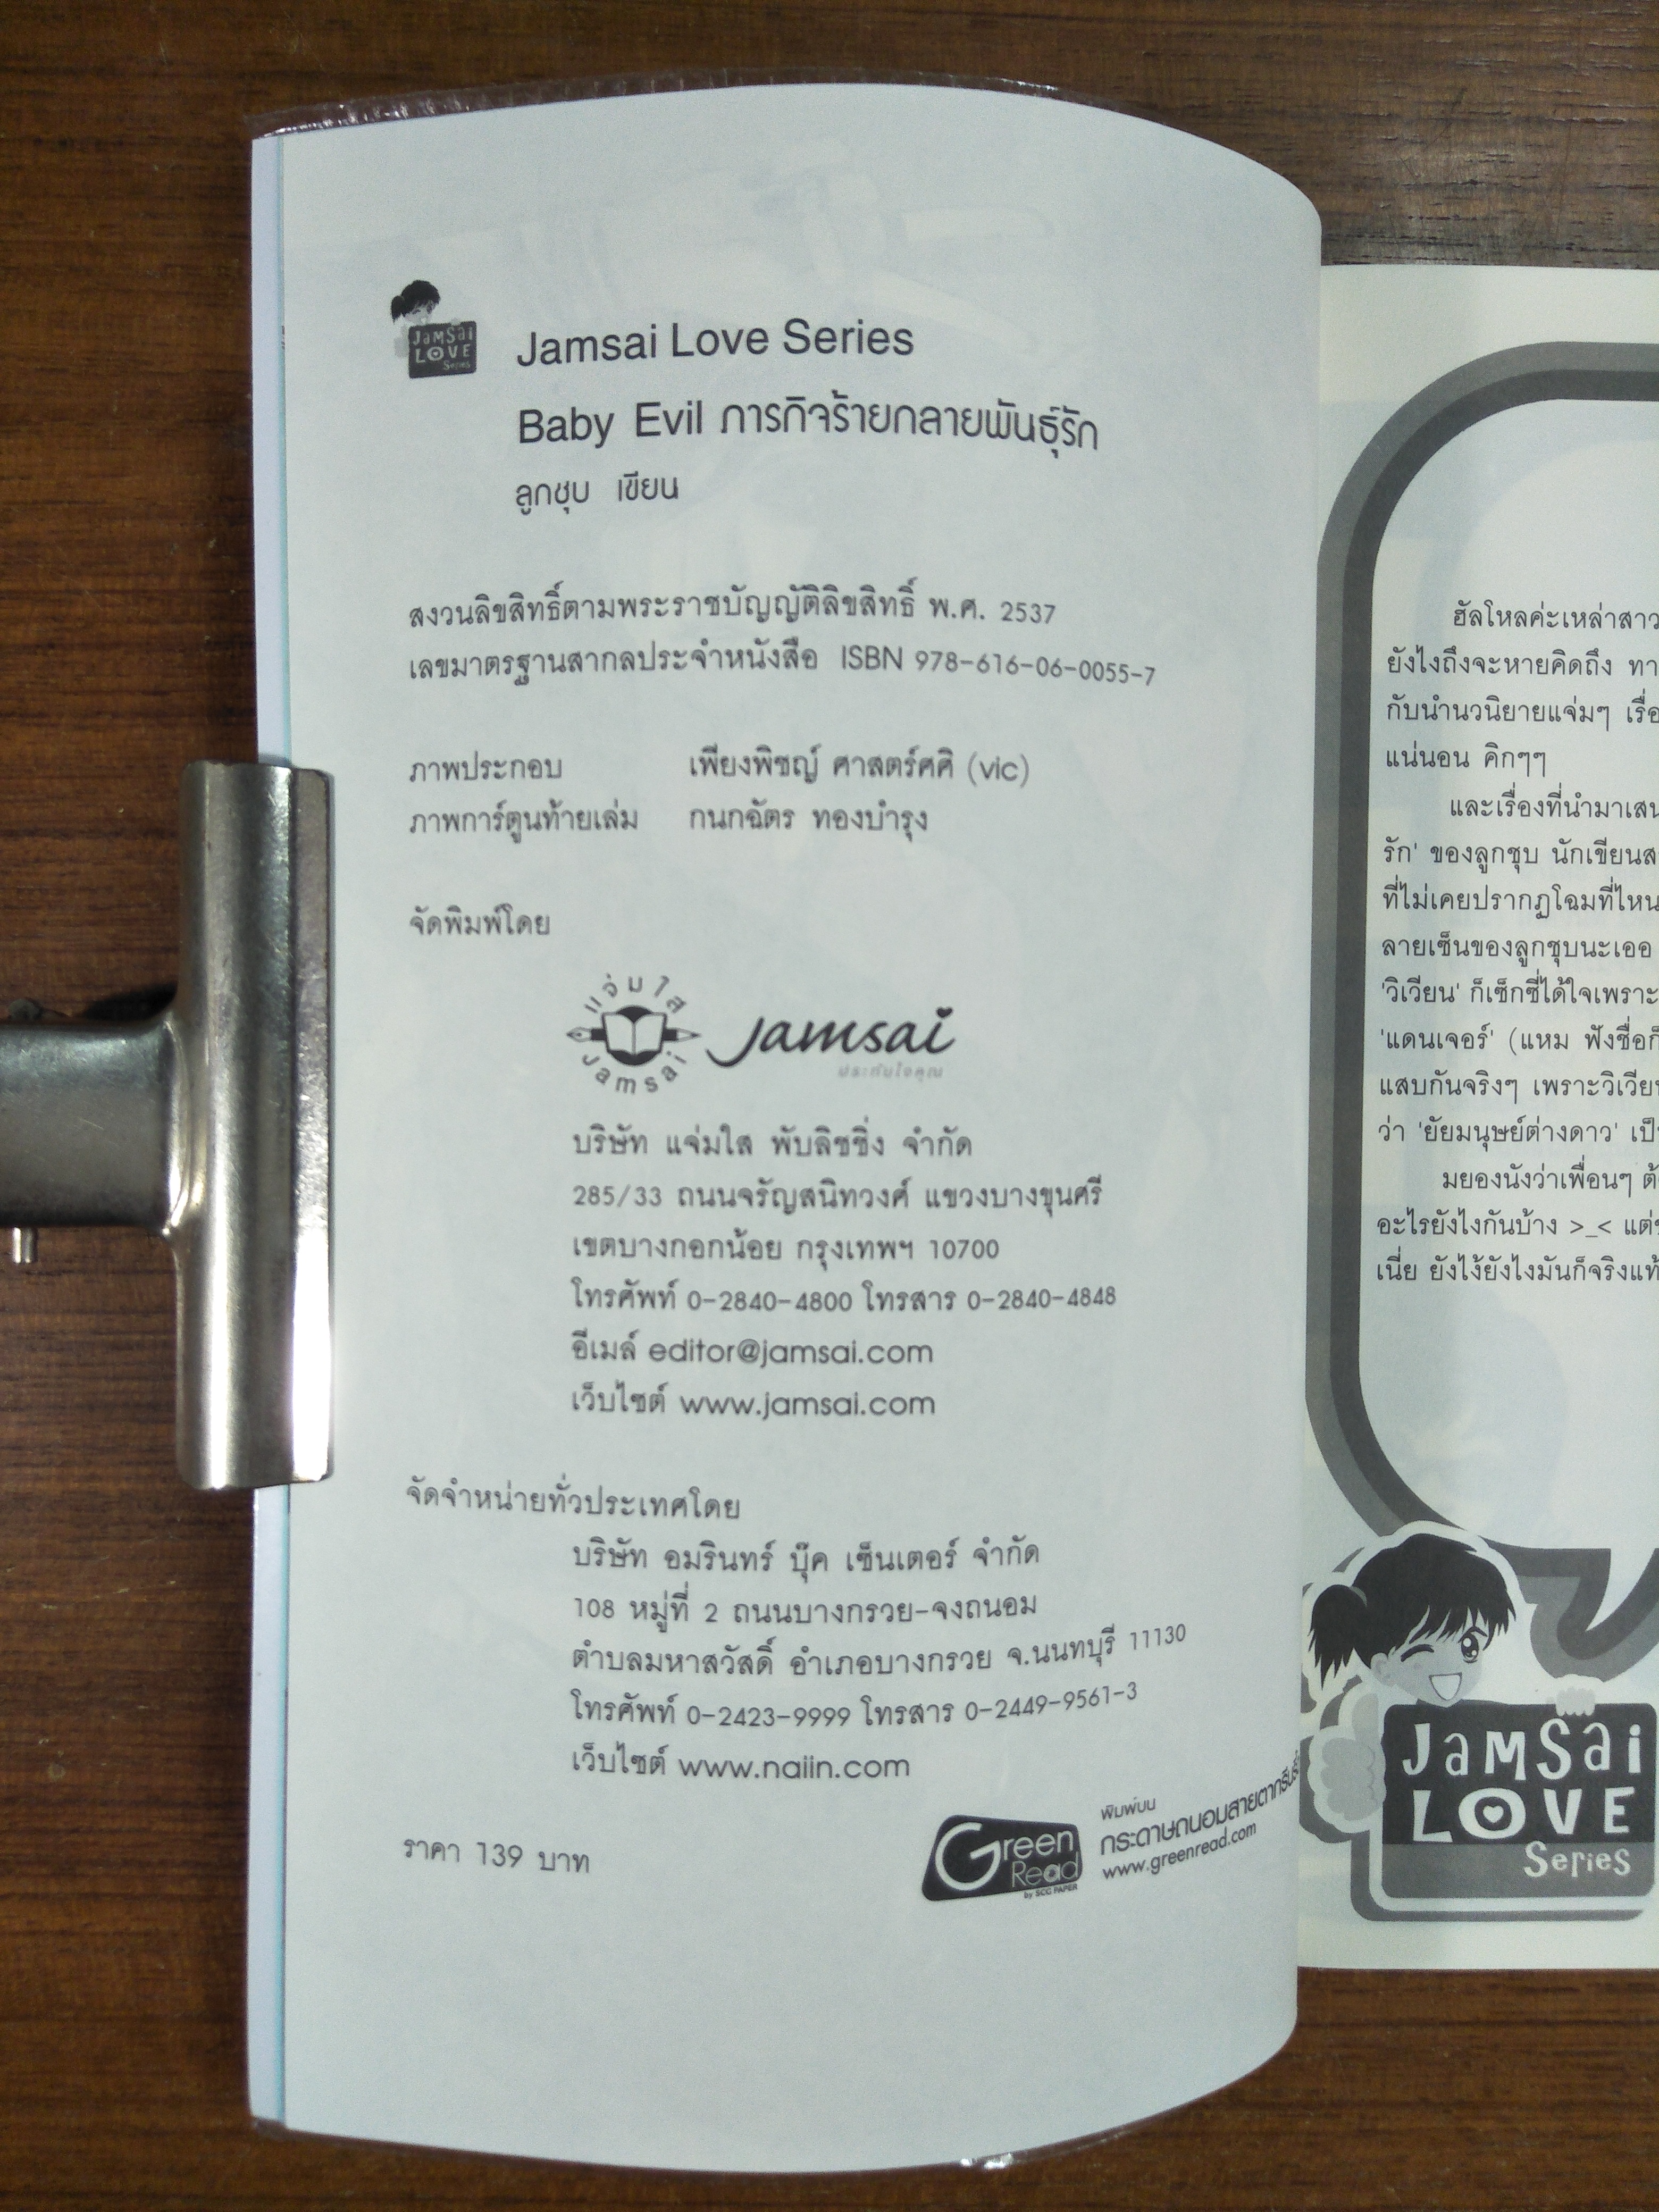 JaMSai
LOVE
Series
Jamsai Love Series
Baby Evil ภารกิจร้ายกลายพันธุ์รัก
ลูกชุบ เขียน
สงวนลิขสิทธิ์ตามพระราชบัญญัติลิขสิทธิ์ พ.ศ. 2537
เลขมาตรฐานสากลประจำหนังสือ ISBN 978-616-06-0055-7
ภาพประกอบ เพียงพิชญ์ ศาสตร์ศศิ (vic)
ภาพการ์ตูนท้ายเล่ม กนกฉัตร ทองบำรุง
จัดพิมพ์โดย
แจ่มใส
Jamsai
Jamsai
ประทับใจคุณ
บริษัท แจ่มใส พับลิชชิ่ง จำกัด
285/33 ถนนจรัญสนิทวงศ์ แขวงบางขุนศรี
เขตบางกอกน้อย กรุงเทพฯ 10700
โทรศัพท์ 0-2840-4800 โทรสาร 0-2840-4848
อีเมล์ editor@jamsai.com
เว็บไซต์ www.jamsai.com
จัดจำหน่ายทั่วประเทศโดย
บริษัท อมรินทร์ บุ๊ค เซ็นเตอร์ จำกัด
108 หมู่ที่ 2 ถนนบางกรวย-จงถนอม
ตำบลมหาสวัสดิ์ อำเภอบางกรวย จ.นนทบุรี 11130
โทรศัพท์ 0-2423-9999 โทรสาร 0-2449-9561-3
เว็บไซต์ www.naiin.com
ราคา 139 บาท
Green
Read
by SCG PAPER
พิมพ์บน
กระดาษถนอมสายตากรีนรี้ด
www.greenread.com
ฮัลโหลค่ะเหล่าสาว
ยังไงถึงจะหายคิดถึง ทา
กับนำนวนิยายแจ่มๆ เรื่อ
แน่นอน คิกๆๆ
และเรื่องที่นำมาเสน
รัก' ของลูกชุบ นักเขียนส
ที่ไม่เคยปรากฏโฉมที่ไหน
ลายเซ็นของลูกชุบนะเออ
'วิเวียน' ก็เซ็กซี่ได้ใจเพราะ
'แดนเจอร์' (แหม ฟังชื่อก็
แสบกันจริงๆ เพราะวิเวีย
ว่า 'ยัยมนุษย์ต่างดาว' เป็
มยองนังว่าเพื่อนๆ ต้
อะไรยังไงกันบ้าง >_< แต่
เนี่ย ยังไง้ยังไงมันก็จริงแท้
JaMSai
LOVE
Series